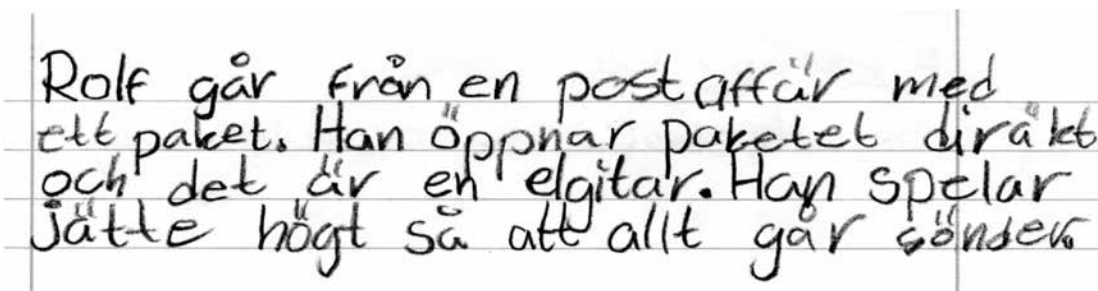 Rolf går från en postaffär med
ett paket. Han öppnar paketet diräkt
och det är en elgitar. Han spelar
jätte högt så att allt går sönder.